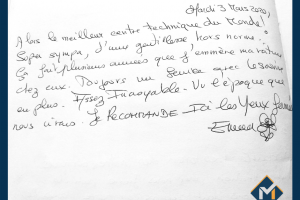 Mardi 3 Mars 2020,
Alors le meilleur centre technique du monde!
Super sympa, d'une gentillesse hors norme.
Ça fait plusieurs années que j'emmène ma voiture
chez eux. Toujours un service avec
en plus. Assez Incroyable. Vu l'époque que
nous vivons. Je RECOMMANDE Ici les Yeux fermés
Emma
M